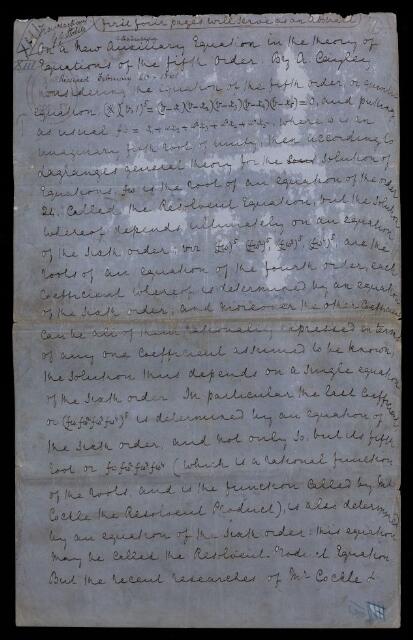 (first four pages will serve as an Abstract)
Transactions
XIII
On a New Auxiliary Equation in the theory of
Equations of the fifth order. By A. Cayley.
Received February 20 - 1861
Considering the equation of the fifth order, or quintic
equation, (*)(v,1)⁵ = (v-x₁)(v-x₂)(v-x₃)(v-x₄)(v-x₅) = 0, and putting
as usual fω = x₁ + ωx₂ + ω²x₃ + ω³x₄ + ω⁴x₅, where ω is an
imaginary fifth root of unity, then according to
Lagrange's general theory for the solution of
Equations, fω is the root of an equation of the order
24, called the Resolvent Equation, but the solution
whereof depends ultimately on an equation
of the sixth order, viz (fω)⁵, (fω²)⁵, (fω³)⁵, (fω⁴)⁵ are the
roots of an equation of the fourth order, each
coefficient whereof is determined by an equation
of the sixth order; and moreover the other coefficients
can be all of them rationally expressed in terms
of any one coefficient assumed to be known;
the solution thus depends on a single equation
of the sixth order. In particular the last coefficient
or (fω fω² fω³ fω⁴)⁵ is determined by an equation of
the sixth order, and not only so, but its fifth
root or fω fω² fω³ fω⁴ (which is a rational function
of the roots, and is the function called by Mr
Cockle the Resolvent Product), is also determined
by an equation of the sixth order: this equation
may be called the Resolvent-Product Equation.
But the recent researches of Mr Cockle &